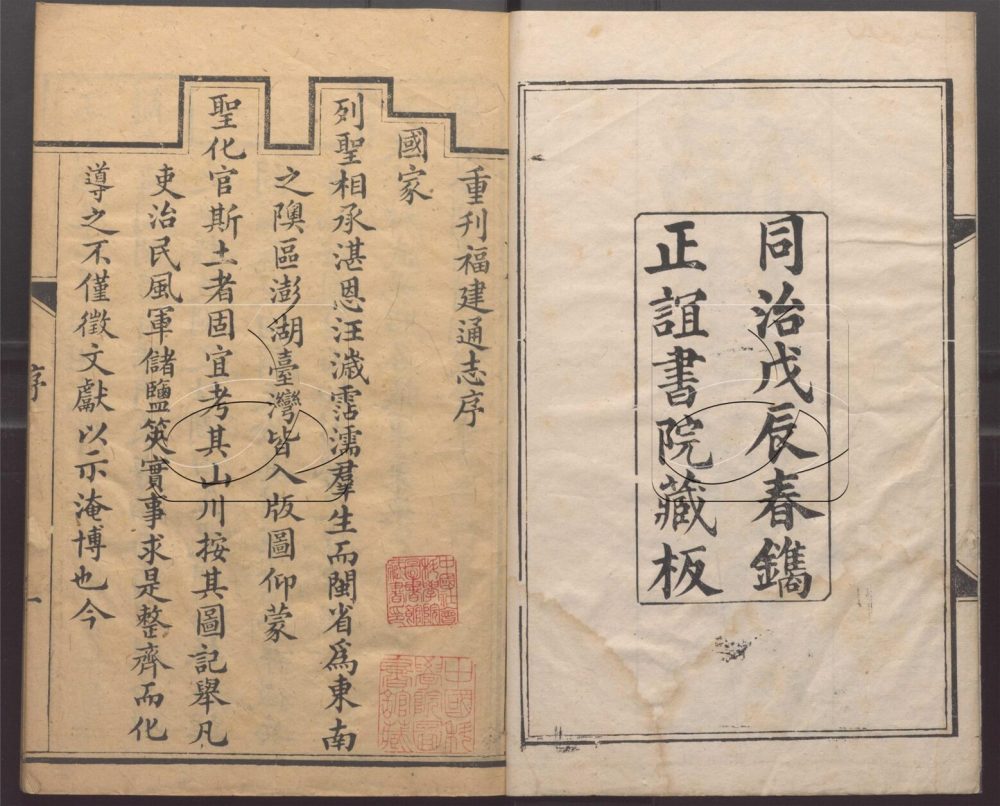 同治戊辰春鐫
正誼書院藏板
重刊福建通志序
國家
列聖相承湛恩汪濊霑濡羣生而閩省爲東南
之隩區澎湖臺灣皆入版圖仰蒙
聖化官斯土者固宜考其山川按其圖記舉凡
吏治民風軍儲鹽筴實事求是整齊而化
導之不僅徵文獻以示淹博也今
序
一